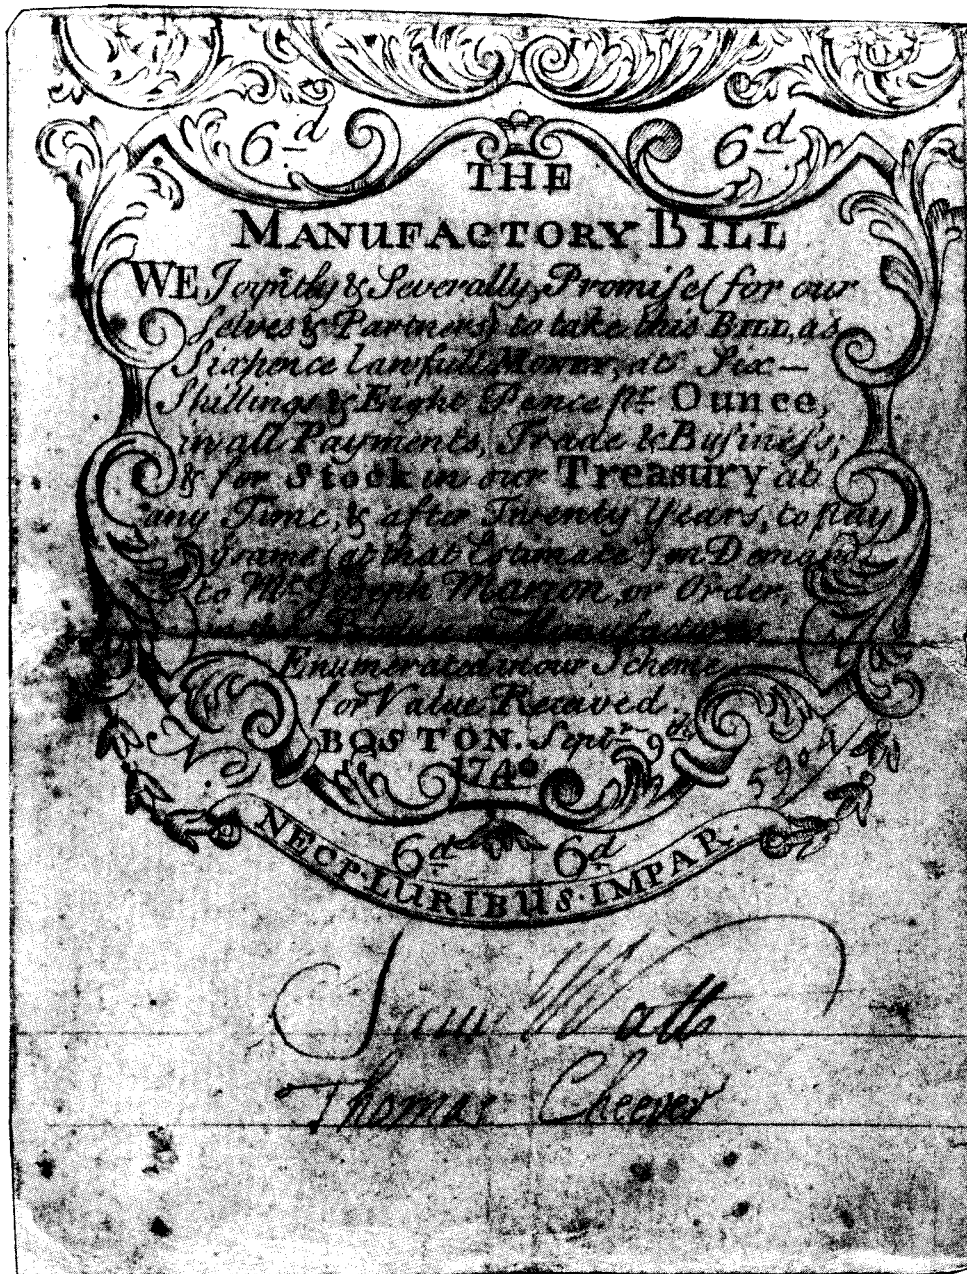 6d 6d
THE
MANUFACTORY BILL
WE Joyntly & Severally, Promise (for our
selves & Partners) to take this BILL, as
Sixpence lawfull Money, at Six—
Shillings & Eight Pence pr Ounce,
in all Payments, Trade & Business,
& for Stock in our Treasury at
any Time, & after Twenty Years, to pay
ye same (at that Estimate) on Demand
to Mr Joseph Marion, or Order,
in the Produce or Manufactures
Enumerated in our Scheme
for Value Received.
BOSTON. Septr 9th
1740
No 5904
6d 6d
NECP·LURIBUS·IMPAR·
Saml Watts
Thomas Cheever